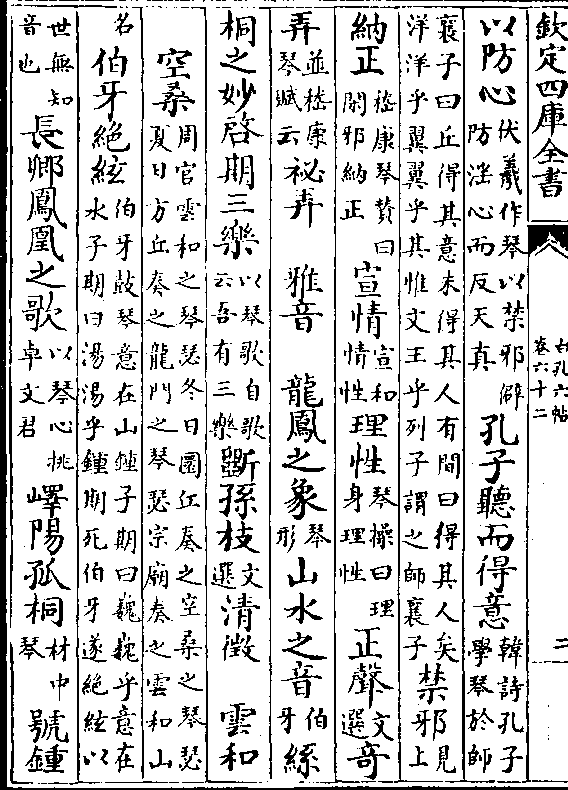 欽定四庫全書 白孔六帖 卷六十二 二
以防心 伏羲作琴以禁邪僻防淫心而反天真 孔子聽而得意 韓詩孔子學琴於師
襄子曰丘得其意未得其人有間曰得其人矣洋洋乎翼翼乎其惟文王乎列子謂之師襄子 禁邪 見上
納正 嵇康琴賛曰閑邪納正 宣情 宣和情性 理性 琴操曰理身理性 正聲 文選 奇
弄 並嵇康琴賦云 祕弄 雅音 龍鳳之象 琴形 山水之音 伯牙 絲
桐之妙 啓期三樂 以琴歌自歌云吾有三樂 斵孫枝 文選 清徴 雲和
空桑 周官雲和之琴瑟冬日圜丘奏之空桑之琴瑟夏日方丘奏之龍門之琴瑟宗廟奏之雲和山
名 伯牙絶絃 伯牙鼓琴意在山鍾子期曰巍巍乎意在水子期曰湯湯乎鍾期死伯牙遂絶絃以
世無知音也 長卿鳳凰之歌 以琴心挑卓文君 嶧陽孤桐 材中琴 號鍾